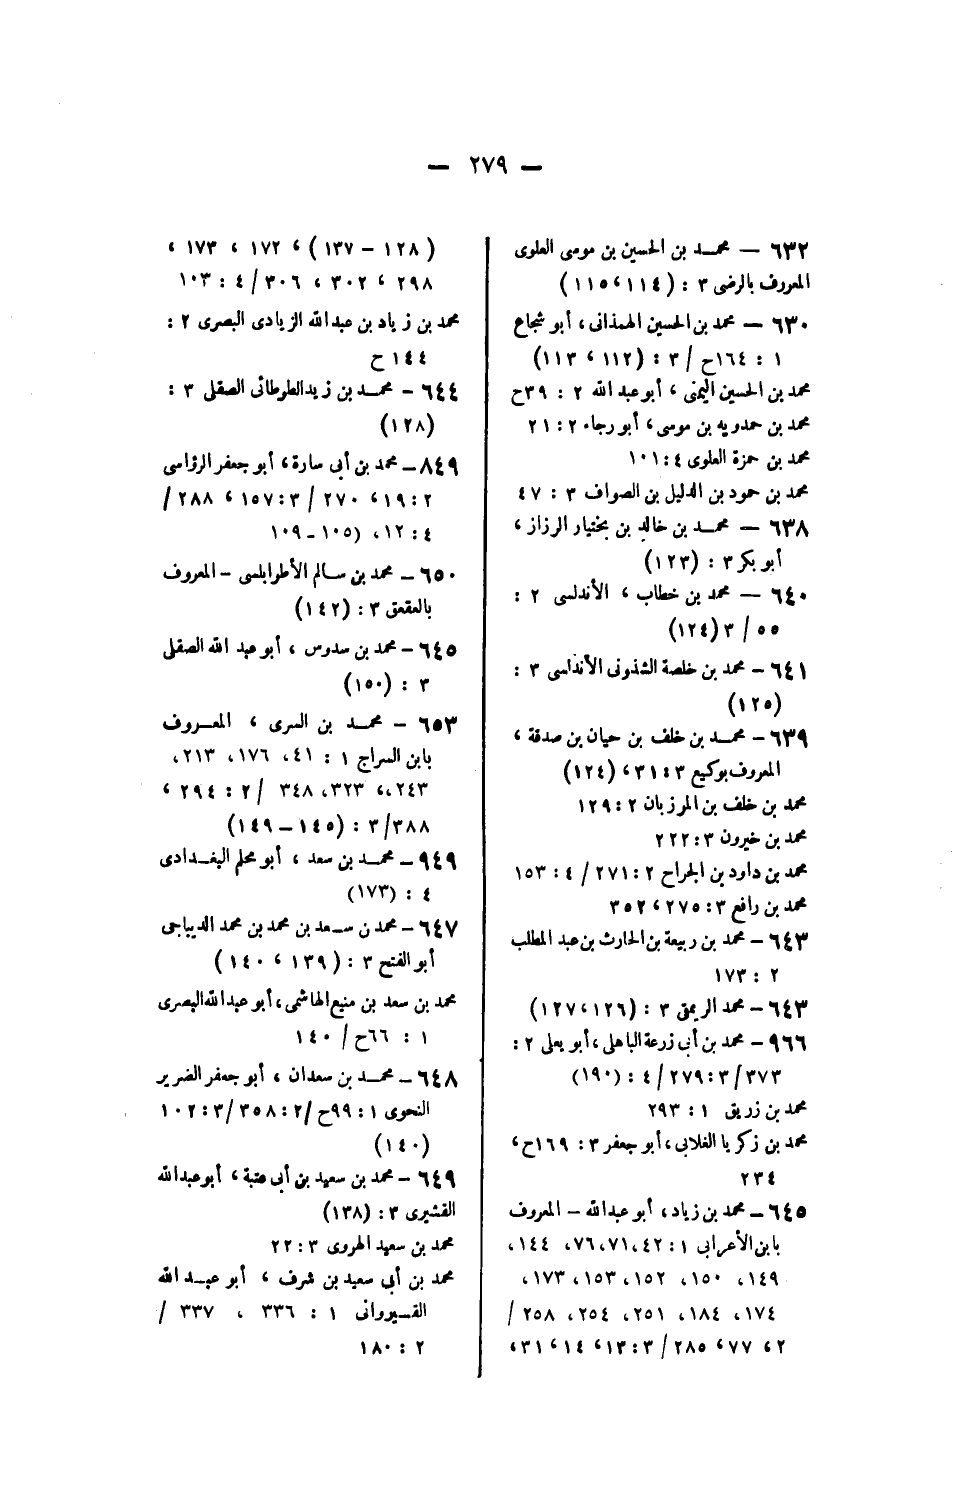 — ٢٧٩ —
٦٣٢ — محمد بن الحسين بن موسى العلوى
المعروف بالرضى ٣ : (١١٤،١١٥)
٦٣٠ — محمد بن الحسين الهمذانى، أبو شجاع
١ : ١٦٤ح / ٣ : (١١٢ ، ١١٣)
محمد بن الحسين اليمنى ، أبو عبد الله ٢ : ٣٩ح
محمد بن حمدويه بن موسى، أبو رجاء ٢ : ٢١
محمد بن حمزة العلوى ٤ : ١٠١
محمد بن حمود بن الدليل بن الصواف ٣ : ٤٧
٦٣٨ — محمد بن خالد بن بختيار الرزاز ،
أبو بكر ٣ : (١٢٣)
٦٤٠ — محمد بن خطاب ، الأندلسى ٢ :
٥٥ / ٣ (١٢٤)
٦٤١ – محمد بن خلصة الشذونى الأندلسى ٣ :
(١٢٥)
٦٣٩ – محمد بن خلف بن حيان بن صدقة ،
المعروف بوكيع ٣ : ٣١ ، (١٢٤)
محمد بن خلف بن المرزبان ٢ : ١٢٩
محمد بن خيرون ٣ : ٢٢٢
محمد بن داود بن الجراح ٢ : ٢٧١ / ٤ : ١٥٣
محمد بن رافع ٣ : ٢٧٥ ، ٣٥٢
٦٤٣ – محمد بن ربيعة بن الحارث بن عبد المطلب
٢ : ١٧٣
٦٤٣ – محمد الريمق ٣ : (١٢٦،١٢٧)
٩٦٦ – محمد بن أبى زرعة الباهلى، أبو يعلى ٢ :
٣٧٣/ ٣ : ٢٧٩/ ٤ : (١٩٠)
محمد بن زريق ١ : ٢٩٣
محمد بن زكريا الغلابى، أبو جعفر ٣ : ١٦٩ح،
٢٣٤
٦٤٥ – محمد بن زياد، أبو عبدالله – المعروف
بابن الأعرابى ١ : ٤٢، ٧١، ٧٦، ١٤٤،
١٤٩، ١٥٠، ١٥٢، ١٥٣، ١٧٣،
١٧٤، ١٨٤، ٢٥١، ٢٥٤، ٢٥٨ /
٢ ، ٧٧ ، ٢٨٥ / ٣ : ١٣ ، ١٤ ، ٣١،
(١٢٨ – ١٣٧) ، ١٧٢ ، ١٧٣ ،
٢٩٨ ، ٣٠٢ ، ٣٠٦ / ٤ : ١٠٣
محمد بن زياد بن عبدالله الزيادى البصرى ٢ :
١٤٤ ح
٦٤٤ – محمد بن زيد الطرطائى الصقلى ٣ :
(١٢٨)
٨٤٩ – محمد بن أبى سارة، أبو جعفر الرؤاسى
٢ : ١٩ ، ٢٧٠ / ٣ : ١٥٧ ، ٢٨٨ /
٤ : ١٢، (١٠٥ – ١٠٩
٦٥٠ – محمد بن سالم الأطرابلسى – المعروف
بالعقعق ٣ : (١٤٢)
٦٤٥ – محمد بن سدوس ، أبو عبد الله الصقلى
٣ : (١٥٠)
٦٥٣ – محمد بن السرى ، المعروف
بابن السراج ١ : ٤١، ١٧٦، ٢١٣،
٢٤٣،، ٣٢٣، ٣٤٨ / ٢ : ٢٩٤ ،
٣٨٨ / ٣ : (١٤٥ – ١٤٩)
٩٤٩ – محمد بن سعد ، أبو محلم البغدادى
٤ : (١٧٣)
٦٤٧ – محمد ن سعد بن محمد بن محمد الديباجى
أبو الفتح ٣ : (١٣٩ ، ١٤٠)
محمد بن سعد بن منيع الهاشمى، أبو عبدالله البصرى
١ : ٦٦ح / ١٤٠
٦٤٨ – محمد بن سعدان ، أبو جعفر الضرير
النحوى ١ : ٩٩ح / ٢ : ٣٥٨ / ٣ : ١٠٢
(١٤٠)
٦٤٩ – محمد بن سعيد بن أبى عتبة ، أبو عبدالله
القشيرى ٣ : (١٣٨)
محمد بن سعيد الهروى ٣ : ٢٢
محمد بن أبى سعيد بن شرف ، أبو عبد الله
القيروانى ١ : ٣٣٦ ، ٣٣٧ /
٢ : ١٨٠